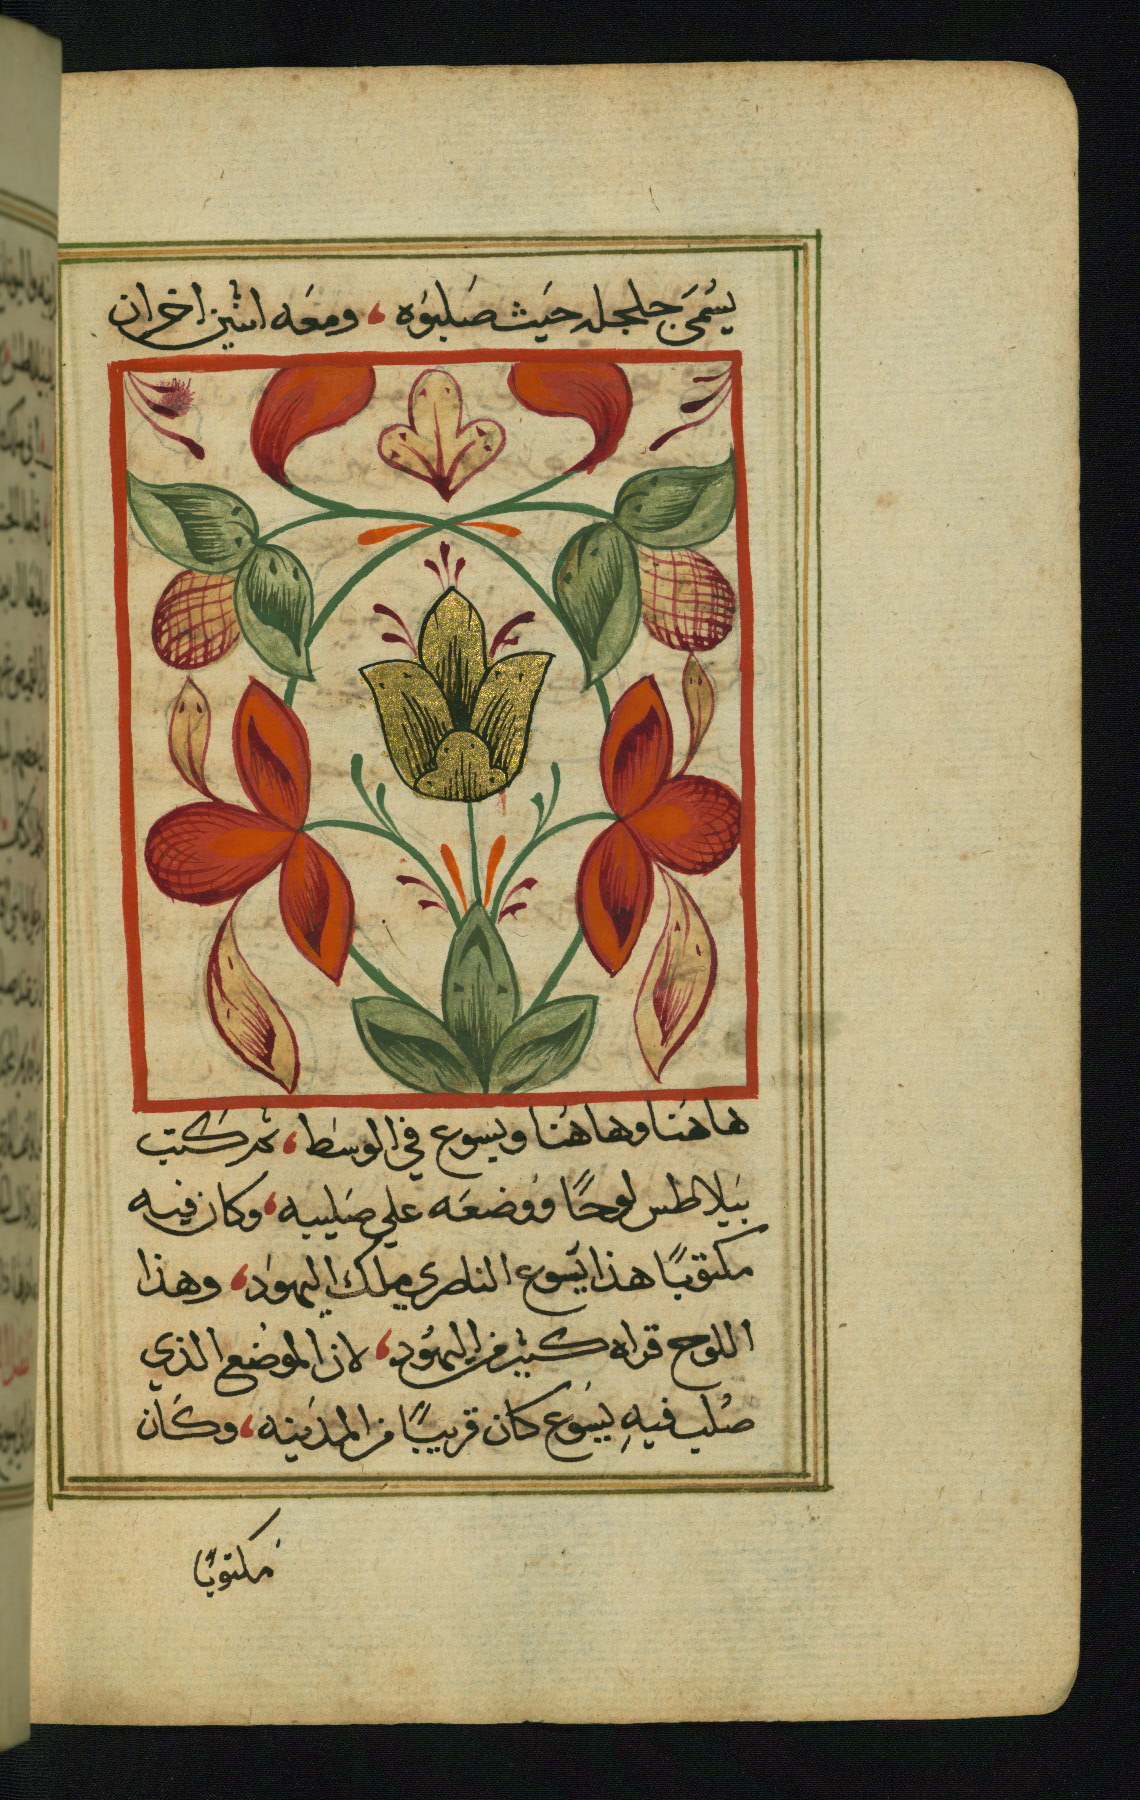 يسُمَى جلجله حَيث صَلبوَه ، ومعَه اثنين اخران
هاهَنا وهاهُنا ويسوع في الوسَط ، ثم كتب
بَيلاطس لوحًا ووضعَه علي صَليبه ، وكان فيه
مكتوبًا هذا يَسوع الناصري ملك اليهوَد ، وهذا
اللوح قراه كثير من اليهُود ، لان الموضع الذي
صُلب فيهِ يسَوع كان قريبًا من المدَينه ، وكَان
مكتوبًا